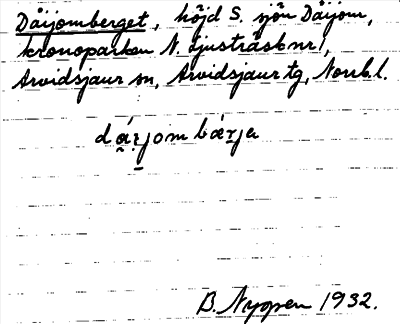 Dåijomberget, höjd S. sjön Dåijom,
kronoparken N. Ljusträsk nr 1,
Arvidsjaur sn, Arvidsjaur tg, Norrb. l.
B. Nygren 1932.